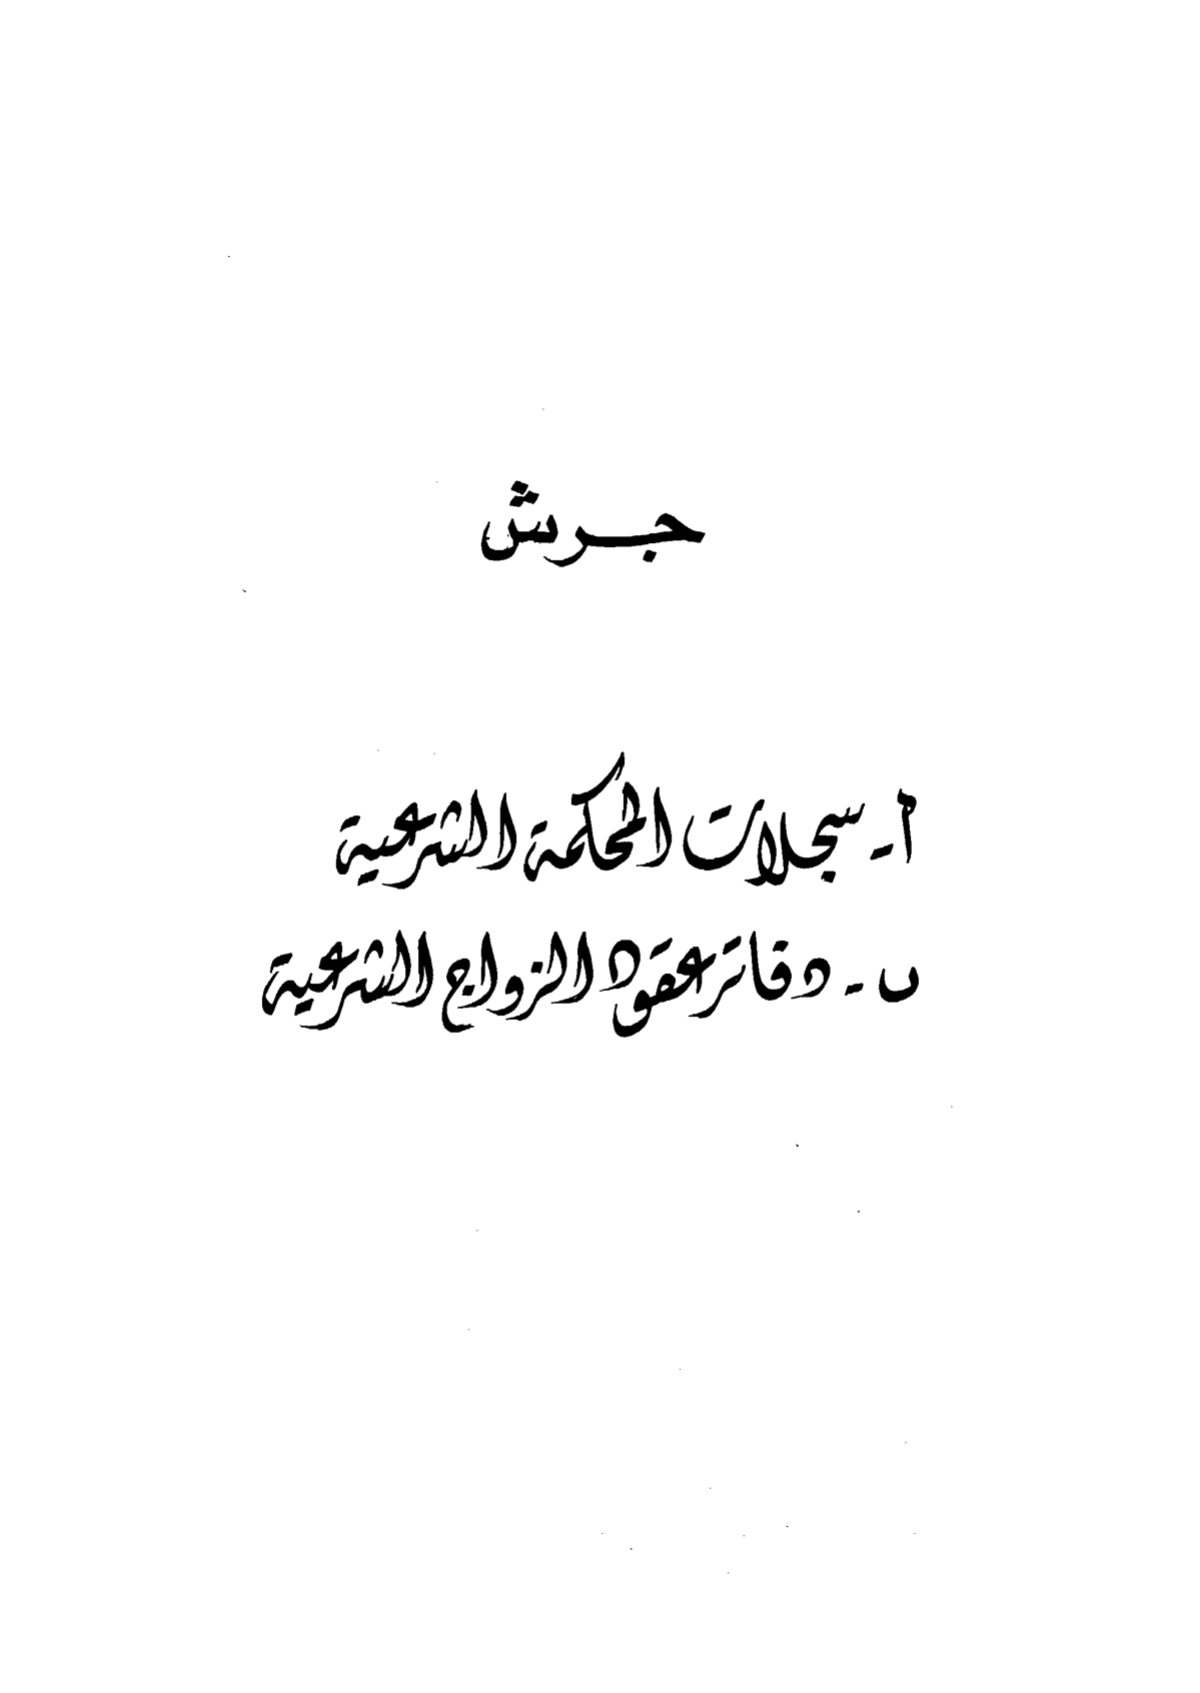 جرش
أ - سجلات المحكمة الشرعية
ب - دفاتر عقود الزواج الشرعية